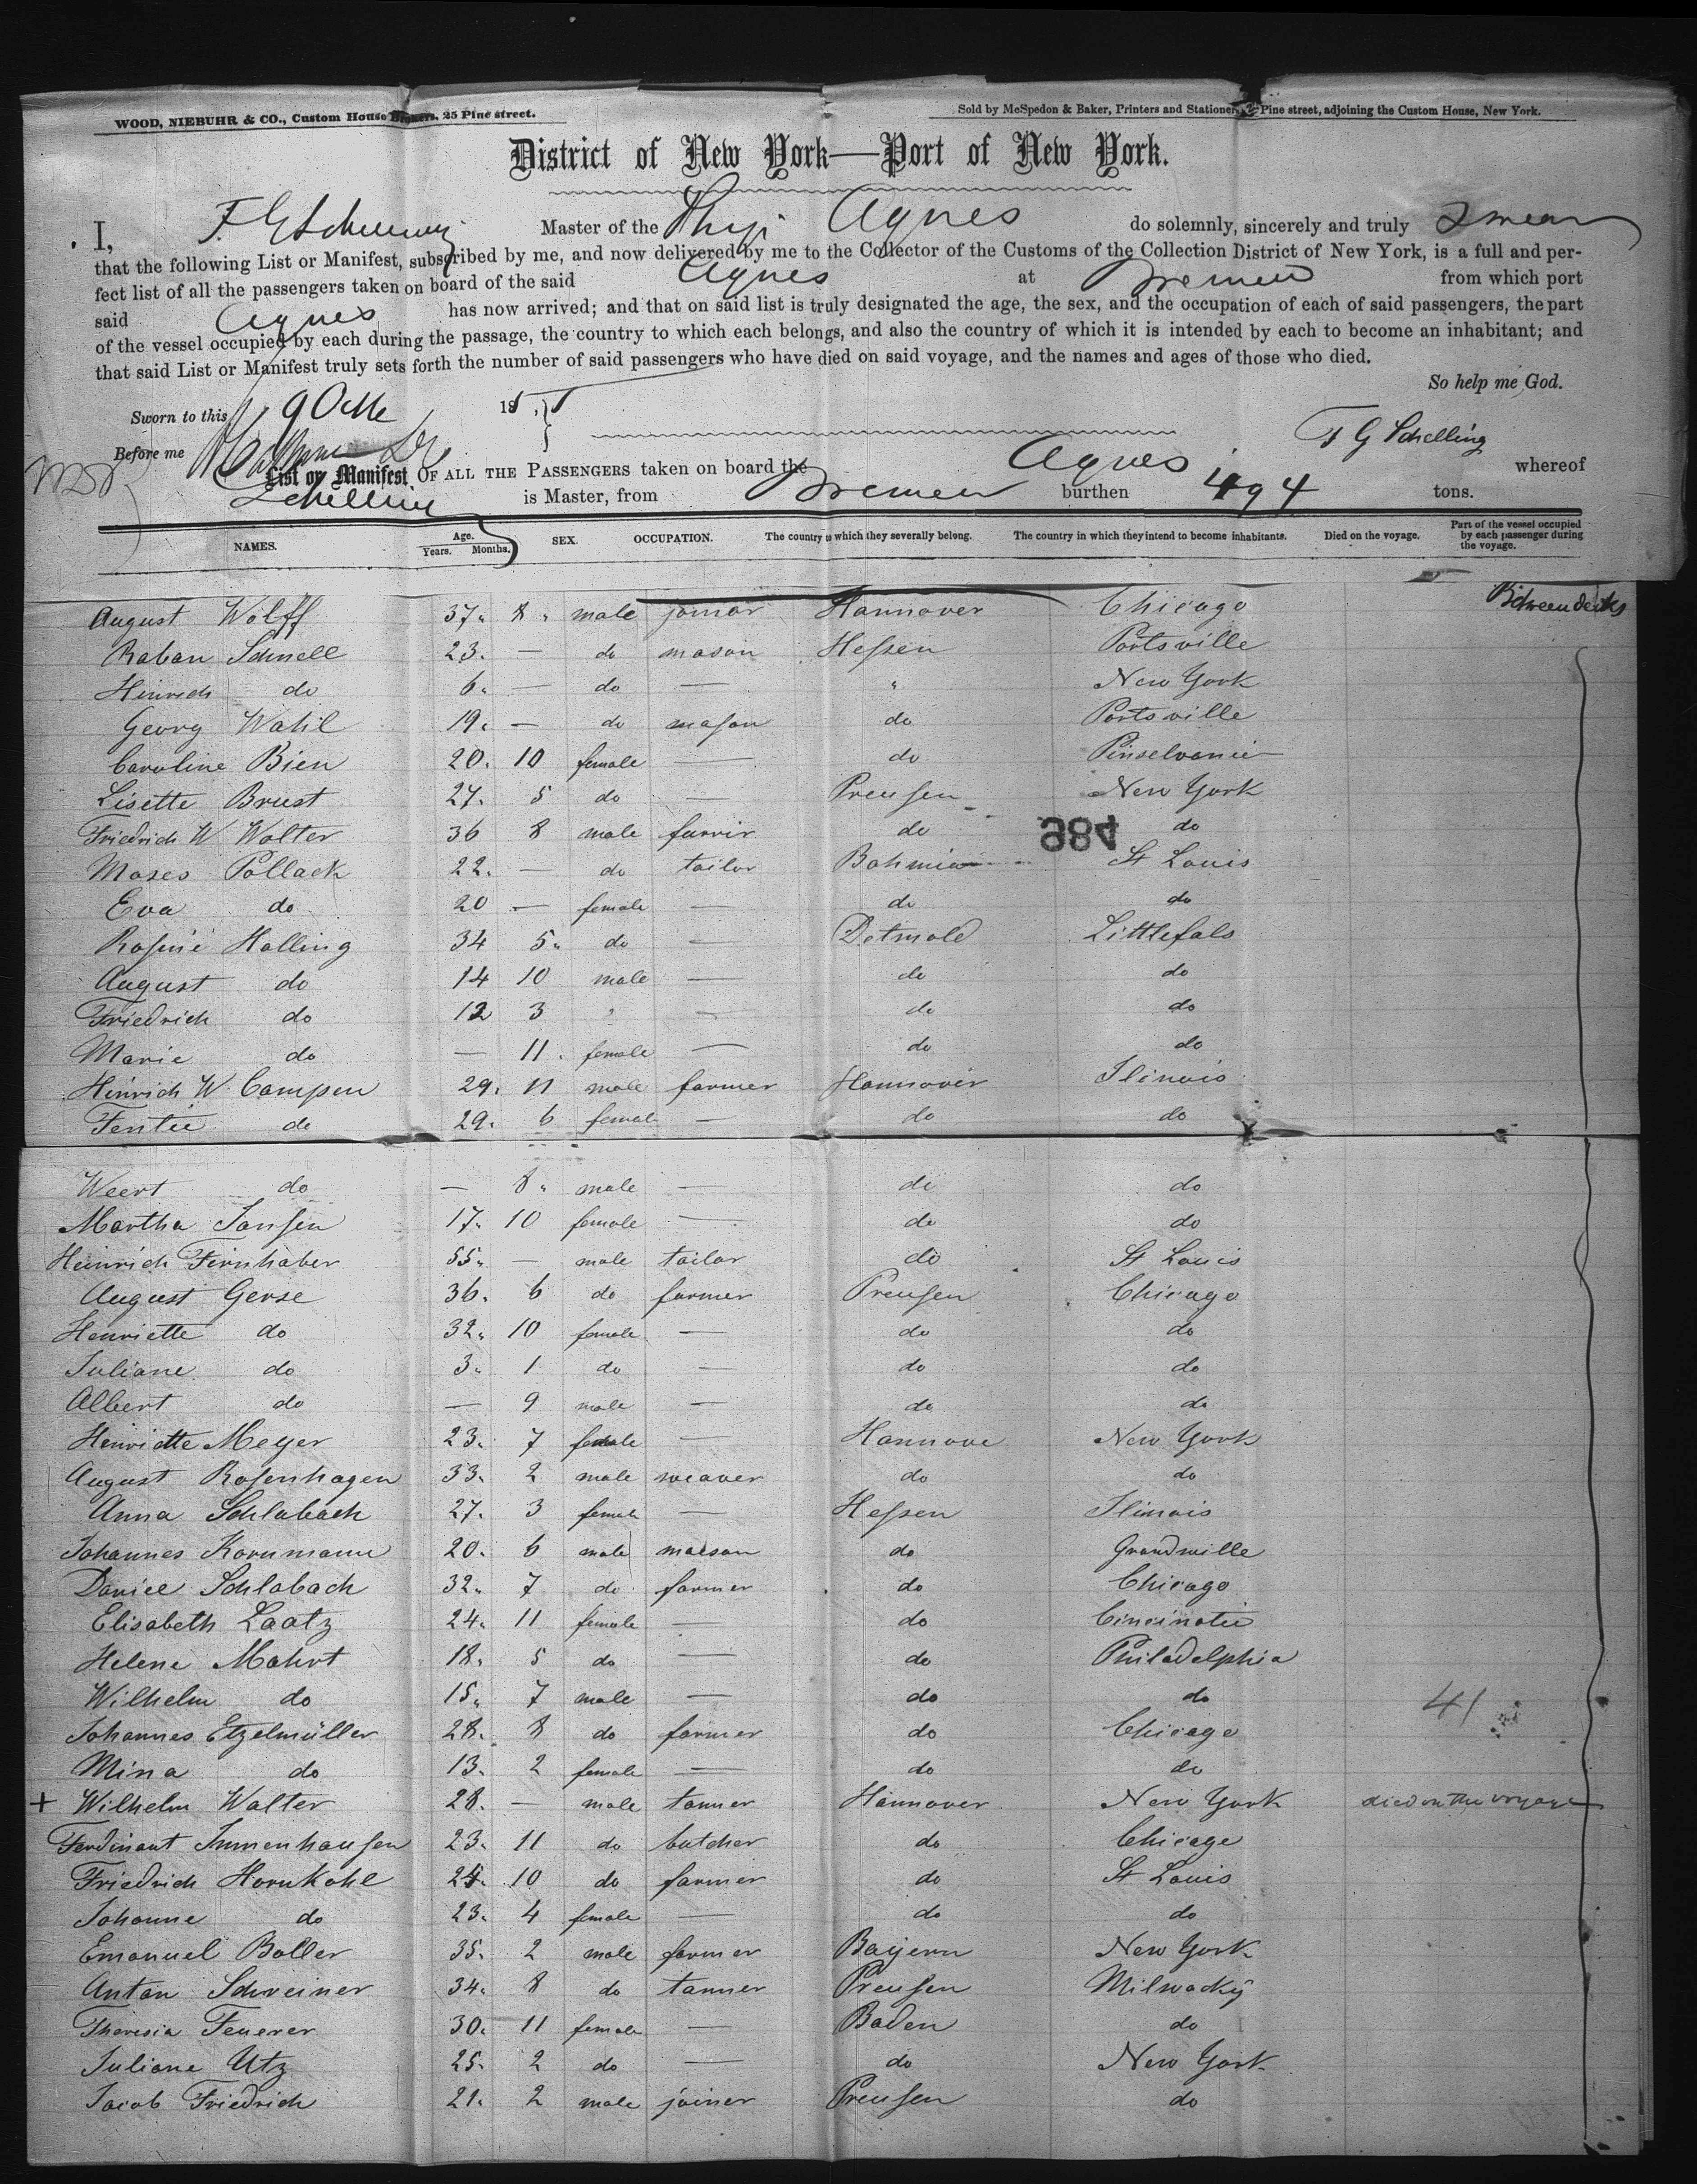 WOOD, NIEBUHR & CO., Custom House Brokers, 25 Pine street.
Sold by McSpedon & Baker, Printers and Stationers, Pine street, adjoining the Custom House, New York.
District of New York—Port of New York.
I, Master of the Ship Agnes do solemnly, sincerely and truly swear
that the following List or Manifest, subscribed by me, and now delivered by me to the Collector of the Customs of the Collection District of New York, is a full and per-
fect list of all the passengers taken on board of the said Agnes at Bremen from which port
said Agnes has now arrived; and that on said list is truly designated the age, the sex, and the occupation of each of said passengers, the part
of the vessel occupied by each during the passage, the country to which each belongs, and also the country of which it is intended by each to become an inhabitant; and
that said List or Manifest truly sets forth the number of said passengers who have died on said voyage, and the names and ages of those who died.
So help me God.
Sworn to this 9 18
Before me
F G Schelling
List or Manifest OF ALL THE PASSENGERS taken on board the Agnes whereof
Schelling is Master, from Bremen burthen 494 tons.
NAMES. Age. Years. Months. SEX. OCCUPATION. The country to which they severally belong. The country in which they intend to become inhabitants. Died on the voyage. Part of the vessel occupied by each passenger during the voyage.
August Wolff 37. 8 male Hannover Chicago Betweendecks
Raban Schnell 23. — do mason Hessen Portsville
Hinrich do 6. — do — " New York
Georg Wahl 19. — do mason do Portsville
Caroline Bien 20. 10 female — do Pinselvanie
Lisette Brust 27. 5 do — Preusen New York
Friedrich W Wolter 36 8 male do do
984
Moses Pollack 22. — do tailor Bohmia St Louis
Eva do 20 — female — do do
Rosine Halling 34 5. do — Detmold Littlefals
August do 14 10 male — do do
Friedrich do 12 3 " — do do
Marie do — 11. female — do do
Hinrich W Campen 29. 11 male farmer Hannover Ilinois
Fentie do 29. 6 female — do do
Weert do — 8. male — do do
Martha Jansen 17. 10 female — do do
Heinrich Firnhaber 55. — male tailor do St Louis
August Gerse 36. 6 do farmer Preusen Chicago
Henriette do 32. 10 female — do do
Juliane do 3. 1 do — do do
Albert do — 9 male — do do
Henriette Meyer 23. 7 female — Hannove New York
August Rosenhagen 33. 2 male weaver do do
Anna Schlabach 27. 3 female — Hessen Ilinois
Johannes Kornmann 20. 6 male maison do Grandwille
Daniel Schlabach 32. 7 do farmer do Chicago
Elisabeth Laatz 24. 11 female — do Cincinatie
Helene Mahrt 18. 5 do — do Philadelphia
Wilhelm do 15. 7 male — do do 41
Johannes Etzelmüller 28. 8 do farmer do Chicago
Mina do 13. 2 female — do do
+ Wilhelm Walter 28. — male tanner Hannover New York died on the voyage
Ferdinant Immenhausen 23. 11 do butcher do Chicago
Friedrich Hornkohl 10 do farmer do St Louis
Johanne do 23. 4 female — do do
Emanuel Boller 35. 2 male farmer Bayern New York
Anton Schreiner 34. 8 do tanner Preusen Milwacky
Theresia Feuerer 30. 11 female — Baden do
Juliane Utz 25. 2 do — do New York
Jacob Friedrich 21. 2 male joiner Preusen do